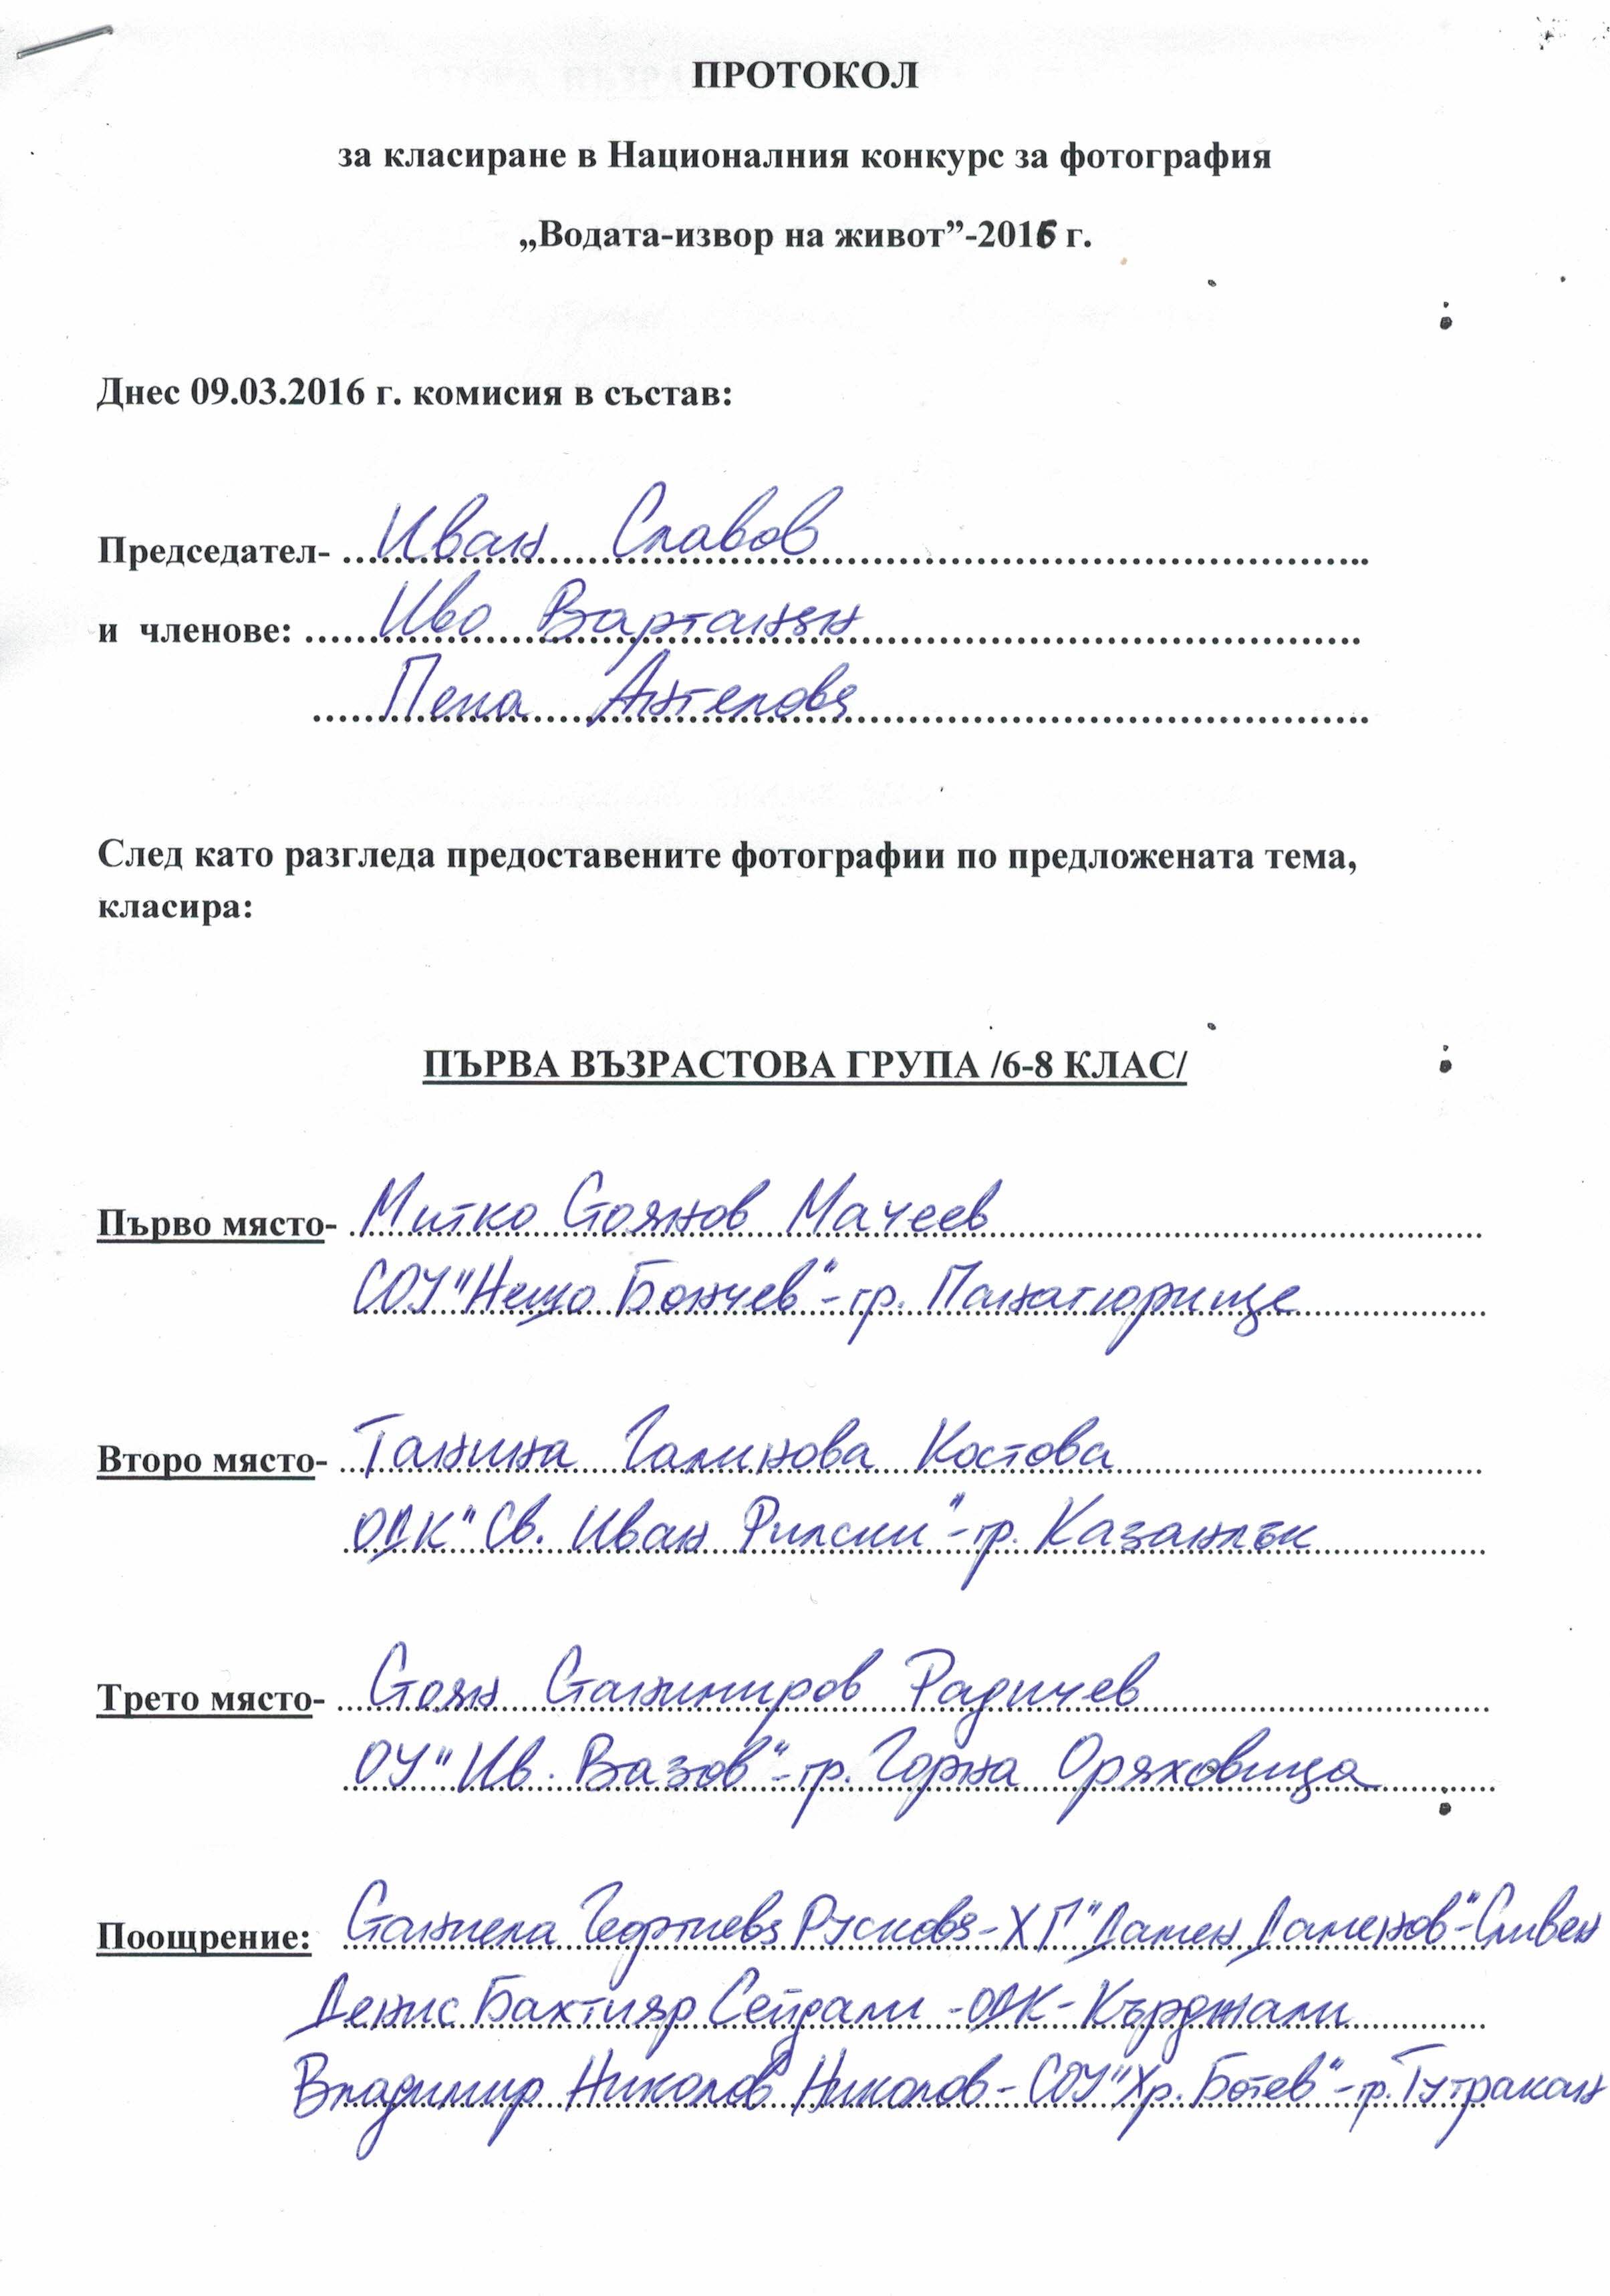 ПРОТОКОЛ
за класиране в Националния конкурс за фотография
„Водата-извор на живот”-2016 г.
Днес 09.03.2016 г. комисия в състав:
Председател- Иван Славов
и членове: Иво Вартанян
Пепа Ангелова
След като разгледа предоставените фотографии по предложената тема,
класира:
ПЪРВА ВЪЗРАСТОВА ГРУПА /6-8 КЛАС/
Първо място- Митко Стоянов Мачеев
СОУ "Нешо Бончев" - гр. Панагюрище
Второ място- Танина Галинова Костова
ОДК "Св. Иван Рилски" - гр. Казанлък
Трето място- Стоян Станимиров Радичев
ОУ "Ив. Вазов" - гр. Горна Оряховица
Поощрение: Станиела Георгиева Рускова - ХГ "Дамян Дамянов" - Сливен
Денис Бахтияр Сейдали - ОДК - Кърджали
Владимир Николов Николов - СОУ "Хр. Ботев" - гр. Тутракан